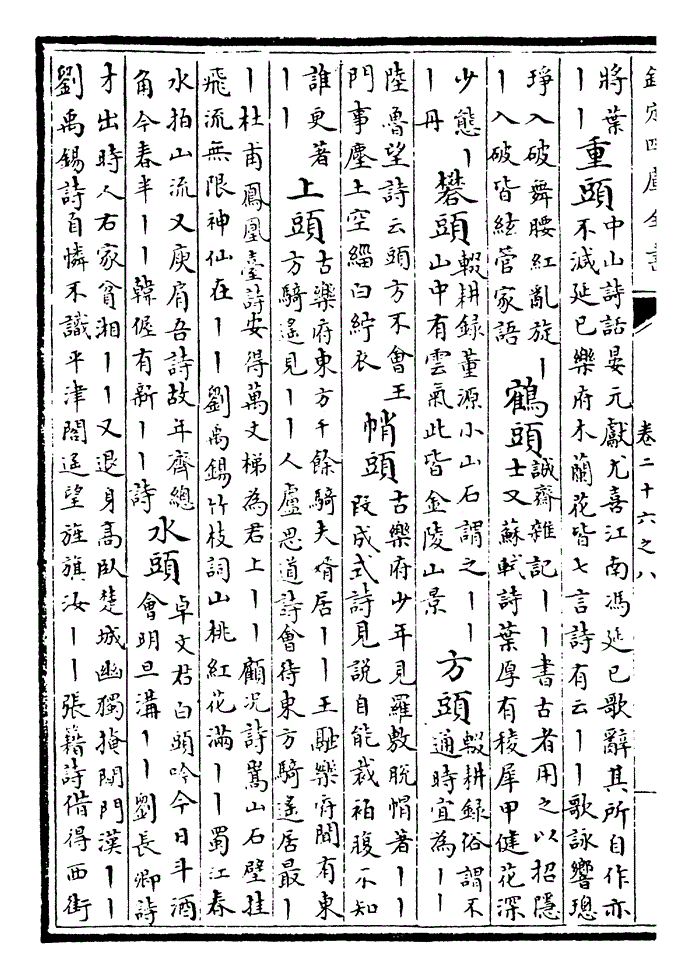 欽定四庫全書
卷二十六之八
將葉
丨丨
重頭
中山詩話晏元獻尤喜江南馮延巳歌辭其所自作亦
不減延巳樂府木蘭花皆七言詩有云丨丨歌詠響璁
琤入破舞腰紅亂旋丨
丨入破皆絃管家語
鶴頭
誠齋雜記丨丨書古者用之以招隱
士又蘇軾詩葉厚有稜犀甲健花深
少態丨
丨丹
礬頭
輟耕錄董源小山石謂之丨丨
山中有雲氣此皆金陵山景
方頭
輟耕錄俗謂不
通時宜為丨丨
陸魯望詩云頭方不會王
門事塵土空緇白紵衣
帩頭
古樂府少年見羅敷脫帽著丨丨
段成式詩見說自能裁袙腹不知
誰更著
丨丨
上頭
古樂府東方千餘騎夫壻居丨丨王融樂府聞有東
方騎遙見丨丨人盧思道詩會待東方騎遙居最丨
丨杜甫鳳凰臺詩安得萬丈梯為君上丨丨顧況詩嵩山石壁挂
飛流無限神仙在丨丨劉禹錫竹枝詞山桃紅花滿丨丨蜀江春
水拍山流又庾肩吾詩故年齊總
角今春半丨丨韓偓有新丨丨詩
水頭
卓文君白頭吟今日斗酒
會明旦溝丨丨劉長卿詩
才出時人右家貧湘丨丨又退身高臥楚城幽獨掩閑門漢丨丨
劉禹錫詩自憐不識平津閣遙望旌旗汝丨丨張籍詩借得西街